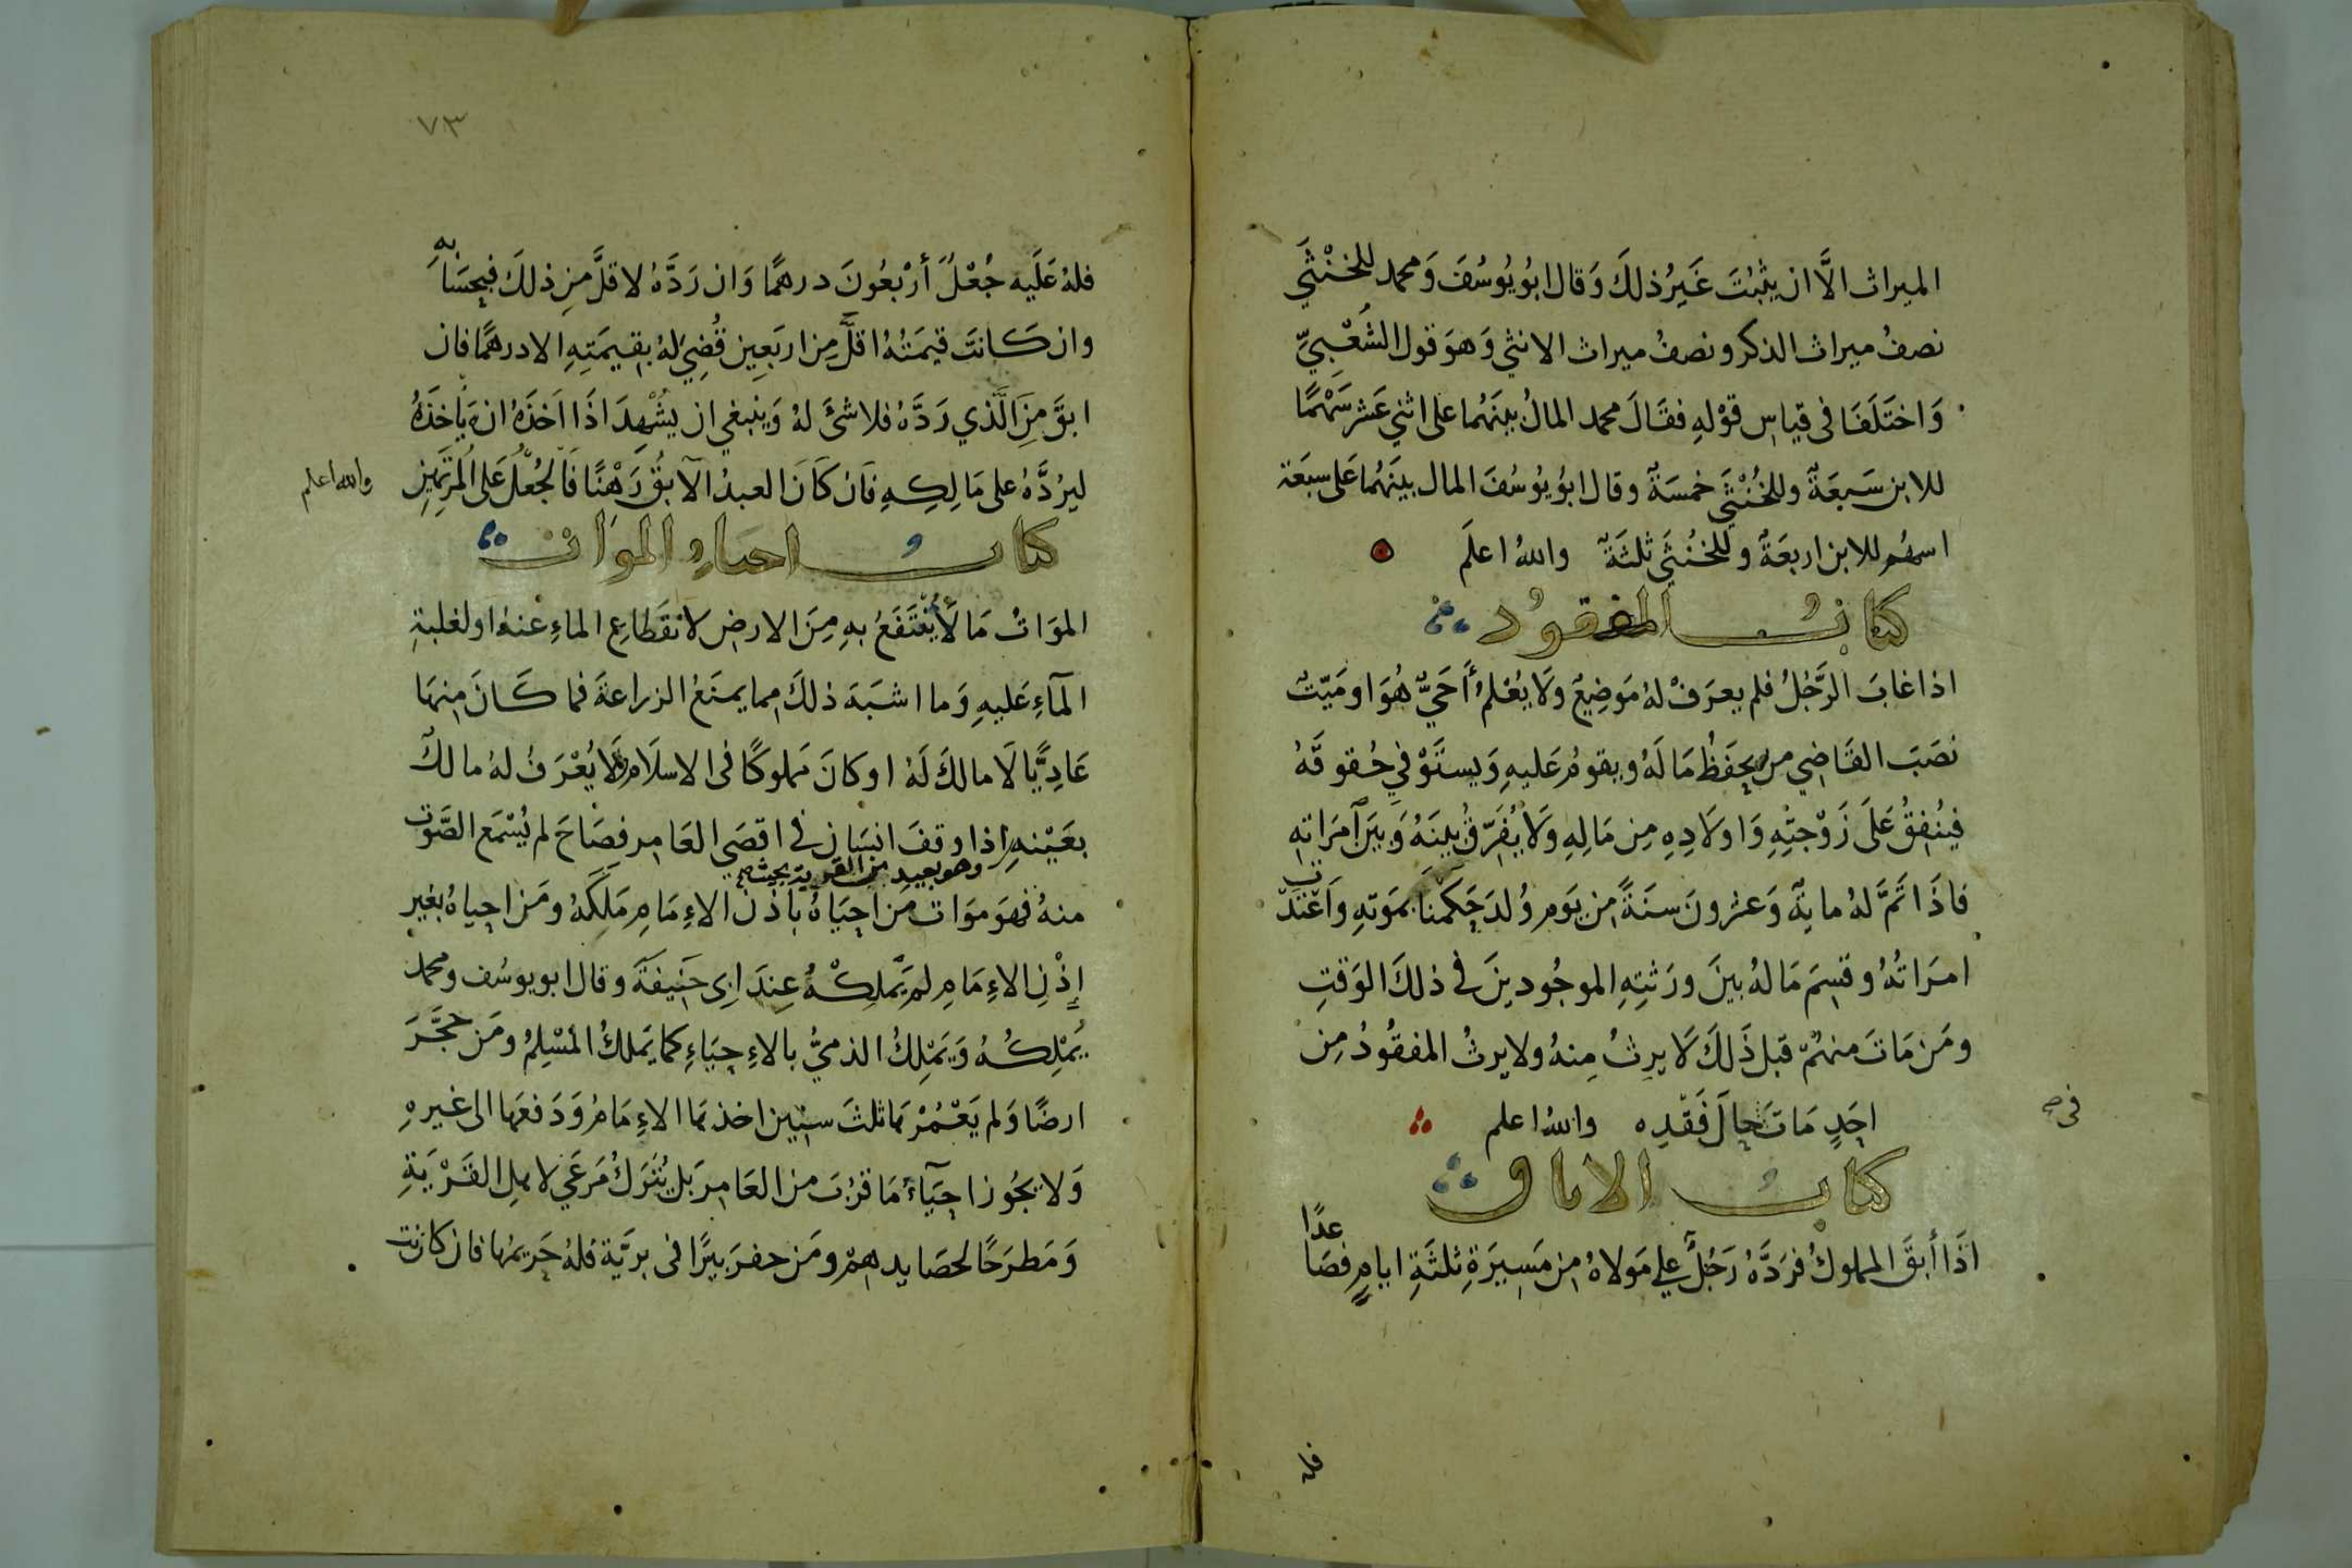 الميراث الَّا ان يثبُتَ غَيرُ ذلكَ وَقال ابُو يُوسُفَ وَمحمد للخنْثَي
نصفُ ميراث الذكر ونصفُ ميراث الانثي وَهوَ قول الشَّعْبِيِّ
وَاختَلَفَا فى قياسِ قوْلهِ فقَالَ محمد المالُ بينَهُما على اثني عَشر سَهْمًا
للابن سَبعَةٌ وللخُنْثَي خمسَةٌ وقال ابوُ يوُسُفَ المال بينَهُما عَلى سبعَة
اسهُم للابن اربعَةٌ وللخُنثَي ثلثَةٌ والله اعلَم
كتابُ المفقوُد
اذا غابَ الرَّجُلُ فلم يعرَفْ لهُ مَوَضِعٌ وَلَا يُعْلمُ أَحَيٌّ هُوَ او مَيّتٌ
نصَبَ القَاضِي من يحفَظُ مَا لَهُ ويقومُ عَليهِ وَيستَوْفي حُقوقَهُ
فيُنْفِقُ عَلَى زَوْجتِهِ وَاولَادِهِ مِن مَالِهِ وَلَا يُفَرِّقُ بينَهُ وَبيَن آمرَاتهِ
فاذَا تَمَّ لهُ مايةٌ وَعشرونَ سنَةً من يَوم وُلدَ حَكمْنَا بموَتهِ وَاعْتَدَّت
امرَاتُهُ وقسِمَ مَا لهُ بينَ ورَثتِهِ الموجُودينَ في ذلكَ الوَقتِ
ومَن مَاتَ منهُمْ قبل ذَلكَ لَا يرِثُ مِنهُ ولا يرثُ المفقُودُ مِن
احَدٍ مَاتَ حالَ فَقْدِه والله اعلم
فى صح
كتابُ الاباق
اذَا أبقَ المملوكُ فرَدَّهُ رَجُلٌ علي مَولاهُ من مَسِيرَةِ ثلثَةِ ايامٍ فصَاعدًا
فله
٧٣
فلهُ عَلَيه جُعْلٌ أرْبعُونَ درهمًا وَان رَدَّهُ لاقلَّ مِن ذلكَ فبحِسَابهِ
وان كَانتَ قيمَتُهُ اقلَّ مِن اربَعِين قُضِيَ لهُ بقِيمَتِهِ الا درهمًا فان
ابقَ مِنَ الَّذي رَدَّهُ فلا شئَ لهُ وَينبغي ان يشْهِدَ اذَا اَخذَهُ انهَ يَأخذَهُ
ليرُدَّهُ على مَالِكِهِ فَان كَانَ العبدُ الآبقُ رَهْنًا فَالْجُعْلُ عَلى الْمُرتَهِنِ والله اعلم
كتابُ احياءِ الموَات
الموَاتُ مَا لَا يُنْتَفَعُ بهِ مِنَ الارضِ لانقَطاعِ الماءِ عَنهُ او لغلبةِ
المآءِ عَليهِ وَما اشبَهَ ذلكَ مِما يمنَعُ الزراعَةَ فما كَانَ مِنهَا
عَادِيًّا لَا مالكَ لَهُ او كانَ مَملوكًا فى الاسلَامِ لَا يُعْرَفُ لهُ مالكٌ
بعَيْنهِ وهو بعيد من القرية بحيث اذا وقفَ انسَان في اقصَى العَامِر فصَاحَ لم يُسْمَع الصَّوْت
منهُ فهوَ موَات مَن احيَاهُ باذْن الاءِمَامِ مَلكَهُ ومَن احياهُ بغير
إذْنِ الاءِمَامِ لم يَملكْهُ عِندَ ابى حَنيفَةَ وقال ابو يوسُف ومحمد
يُمْلكُهُ وَيَمْلِكُ الذميُّ بالاءِحيَاءِ كما يَملكُ المسْلِمُ ومَن حَجَّرَ
ارضًا وَلم يَعْمُرْهَا ثلثَ سنِين اخذهَا الاءِمَامُ وَدَفعَها الى غيرهِ
وَلا يجُوز احيَآءُ مَا قرُبَ من العَامِرَ بَل يُترَكُ مَرعَي لاهلِ القَرْيَةِ
وَمَطرَحًا لحصَايدِهِمْ ومَن حفرَ بيرًا فى بريَّة فلهُ حَريمُها فان كانت